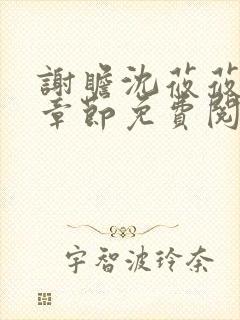 謝瞻沈莜莜
章節免費閱
宇智波玲奈